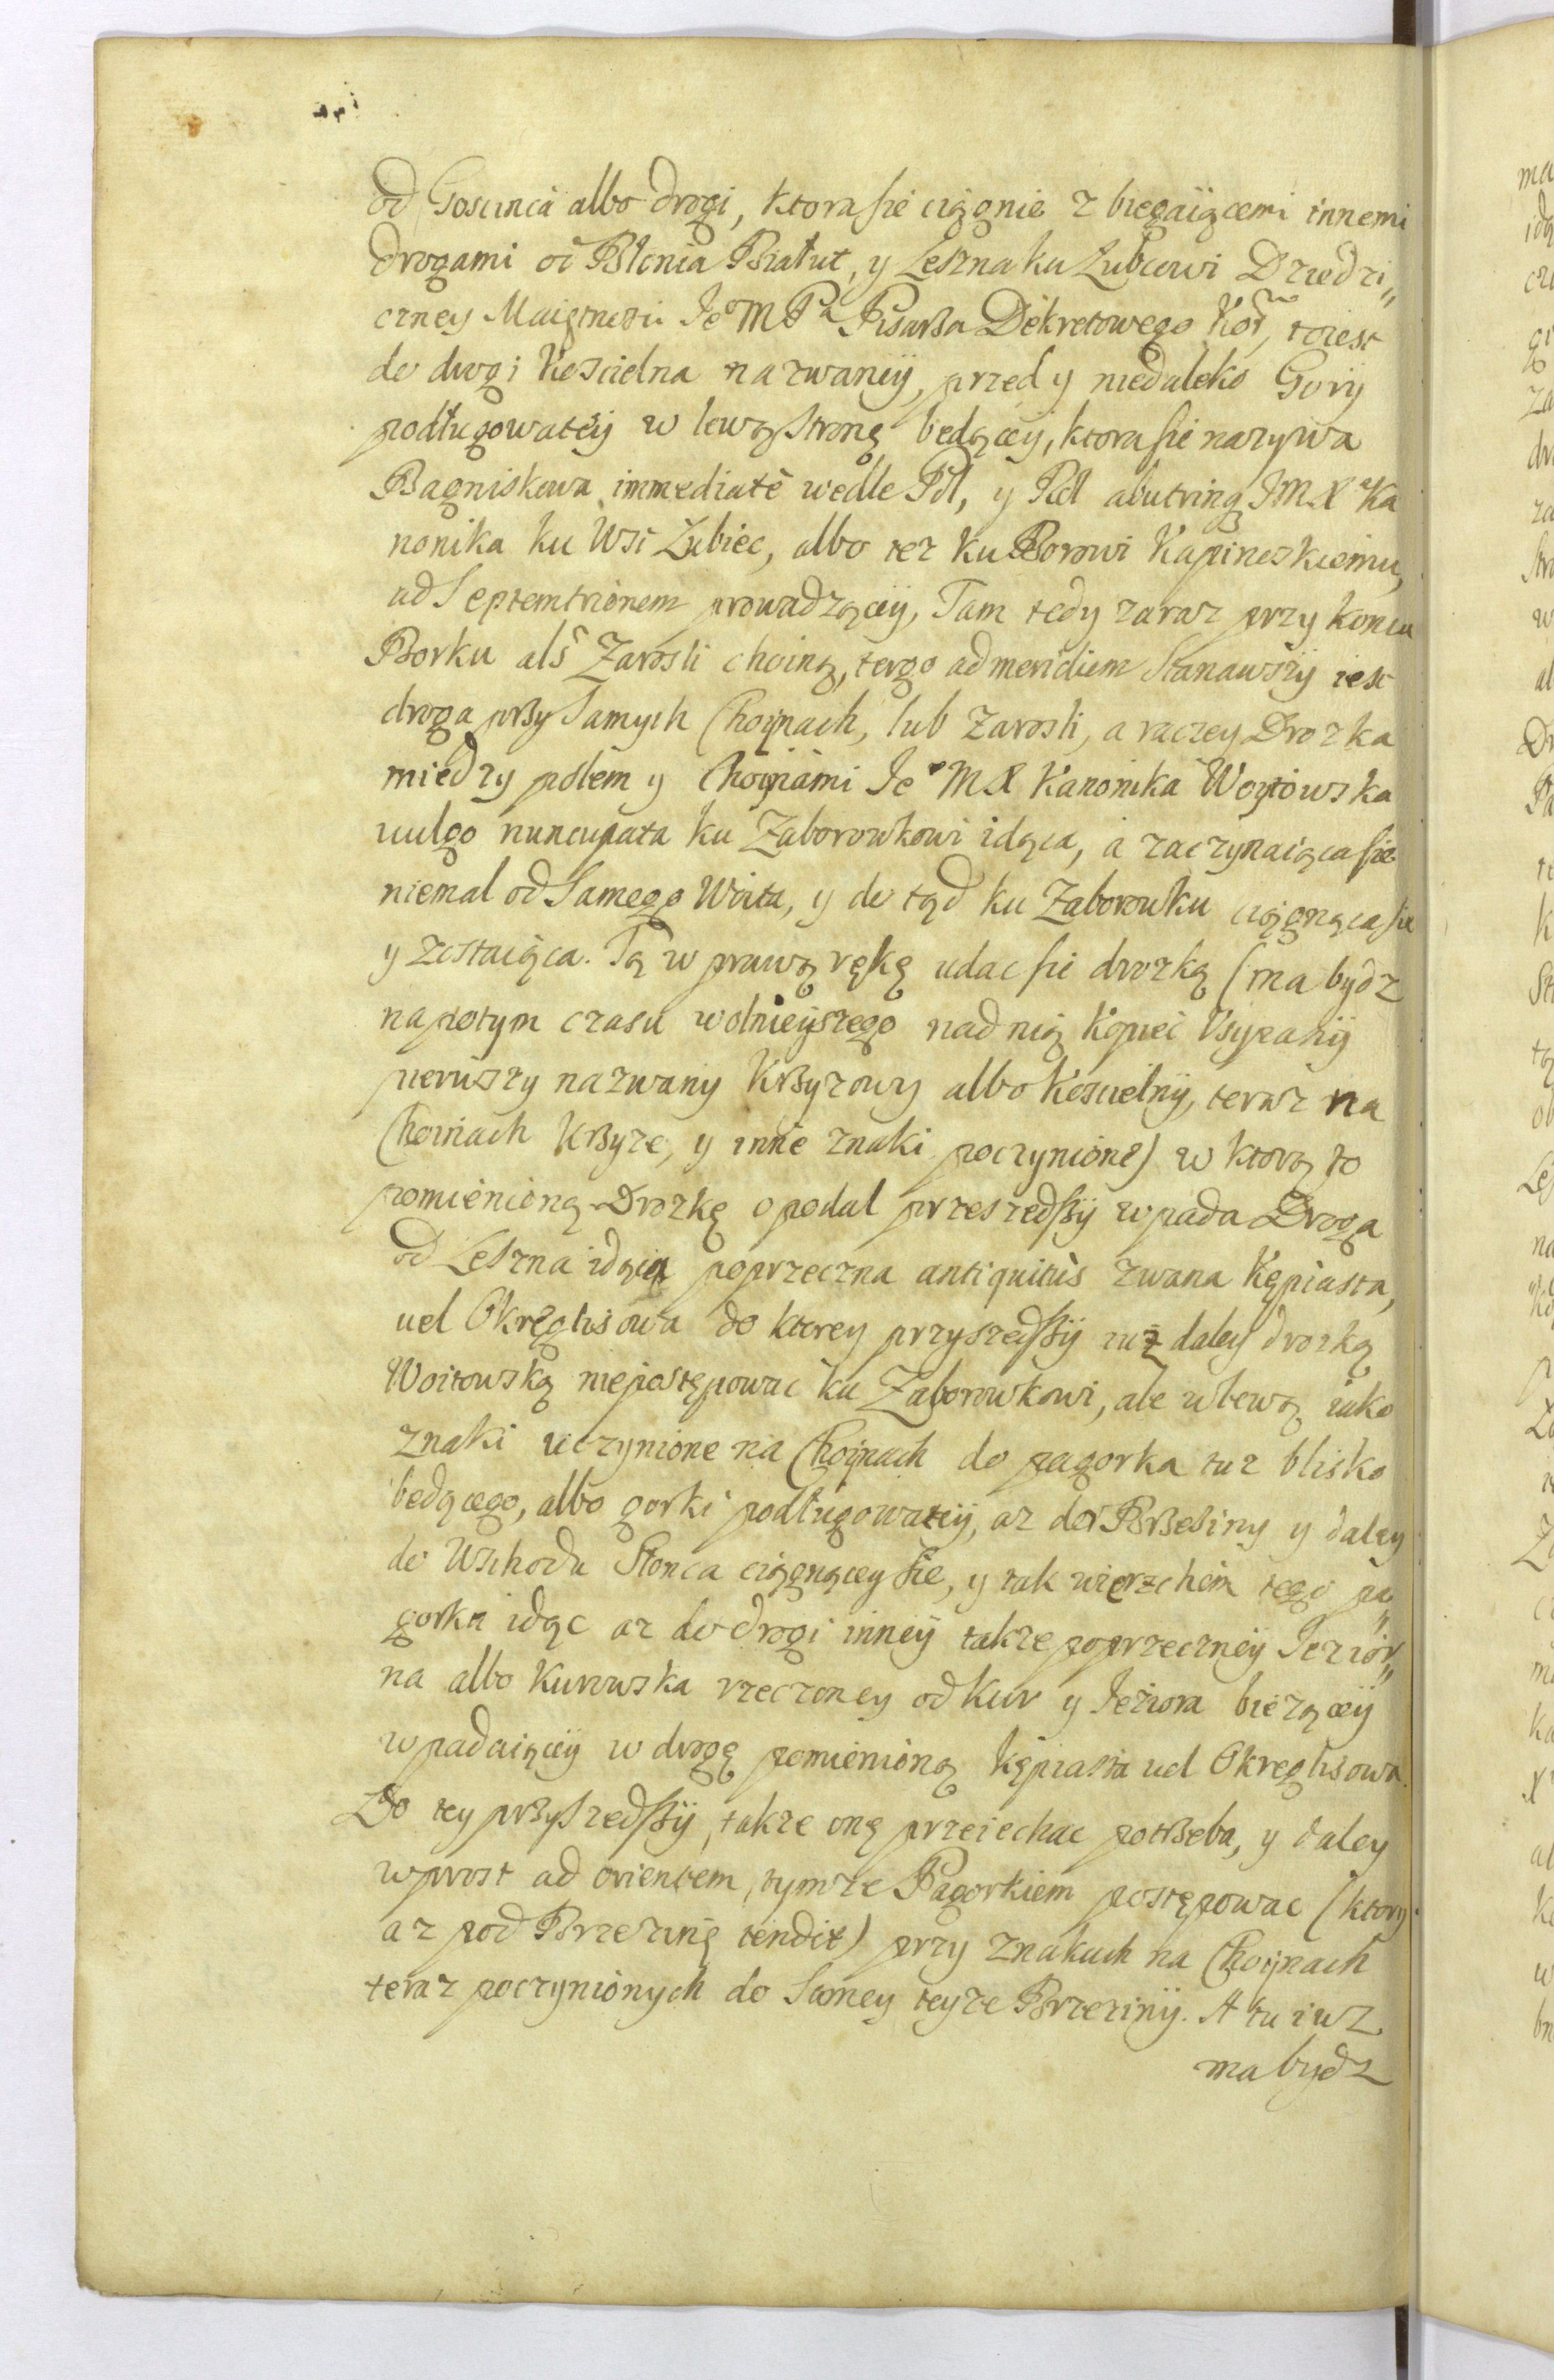 od Goscinca albo drogi, ktora sie ciągnie z biegaiącemi innemi
drogami od Błonia Białut, y Leszna ku Łubcowi Dziedzi„
czney Maiętnosci Je͛o M Pa Pisarßa Dekretowego Kor̃, toiest
do drogi Koscielna nazwaneÿ, przed y niedaleko Gorÿ
podługowateÿ w lewą stronę będąceÿ, ktora sie nazywa
Bagniskowa immediatè wedle Pól, y Pól abutring JMXa Ka
nonika ku Wsi Łubiec, albo tez ku Borowi Kapineskiemu,
ad Septemtrionem prowadząceÿ, Tam tedy zaraz przy koncu
Borku als̃ Zarosli choiną, tergo ad meridiem Stanawszÿ iest
droga prßy Samych Choÿnach, lub Zarosli, a raczey Drozka
miedzy polem y Choÿnami Jeo MX Kanonika Woÿtowska
uulgo nuncupata ku Zaborowkowi idąca, a zaczynaiąca sie
niemal od Samego Woita, y do tąd ku Zaborowku ciągnąca sie
y zostaiąca. Tą w prawą rękę udac sie drozką (ma bydz
napotym czasu wolnieÿszego nad nią Kopiec Vsypanÿ
pierwszy nazwany Krßyzowy albo Koscielnÿ, teraz na
Choinach Krßyze, y inne znaki poczynione) w ktorą to
pomienioną Drozkę opodal przeszedßÿ wpada Droga
od Leszna idąca poprzeczna antiquitùs zwana Kępiasta,
uel Okręglisowa do ktorey przyszedßÿ iuz daley drozką
Woitowską niepostępowac ku Zaborowkowi, ale w lewą iako
znaki uczynione na Choÿnach do pagorka tuz blisko
będącego, albo gorki podługowateÿ, az do Brßeziny y daley
do Wschodu Słonca ciągnącey sie, y tak wierzchem tego pa„
gorka idąc az do drogi inneÿ takze poprzeczneÿ Jezior„
na albo Kurowska rzeczoney od Kur y Jeziora bieząceÿ
wpadaiąceÿ w drogę pomienioną Kępiasta uel Okręglisowa.
Do tey prßyszedßÿ, takze onę przeiechac potrßeba, y daley
wprost ad orientem, tymze Pagorkiem postępowac (ktory
az pod Brzezinę tendit) przy znakach na Choÿnach
teraz poczynionych do Samey teyze Brzezinÿ. A tu iuz
ma bydz